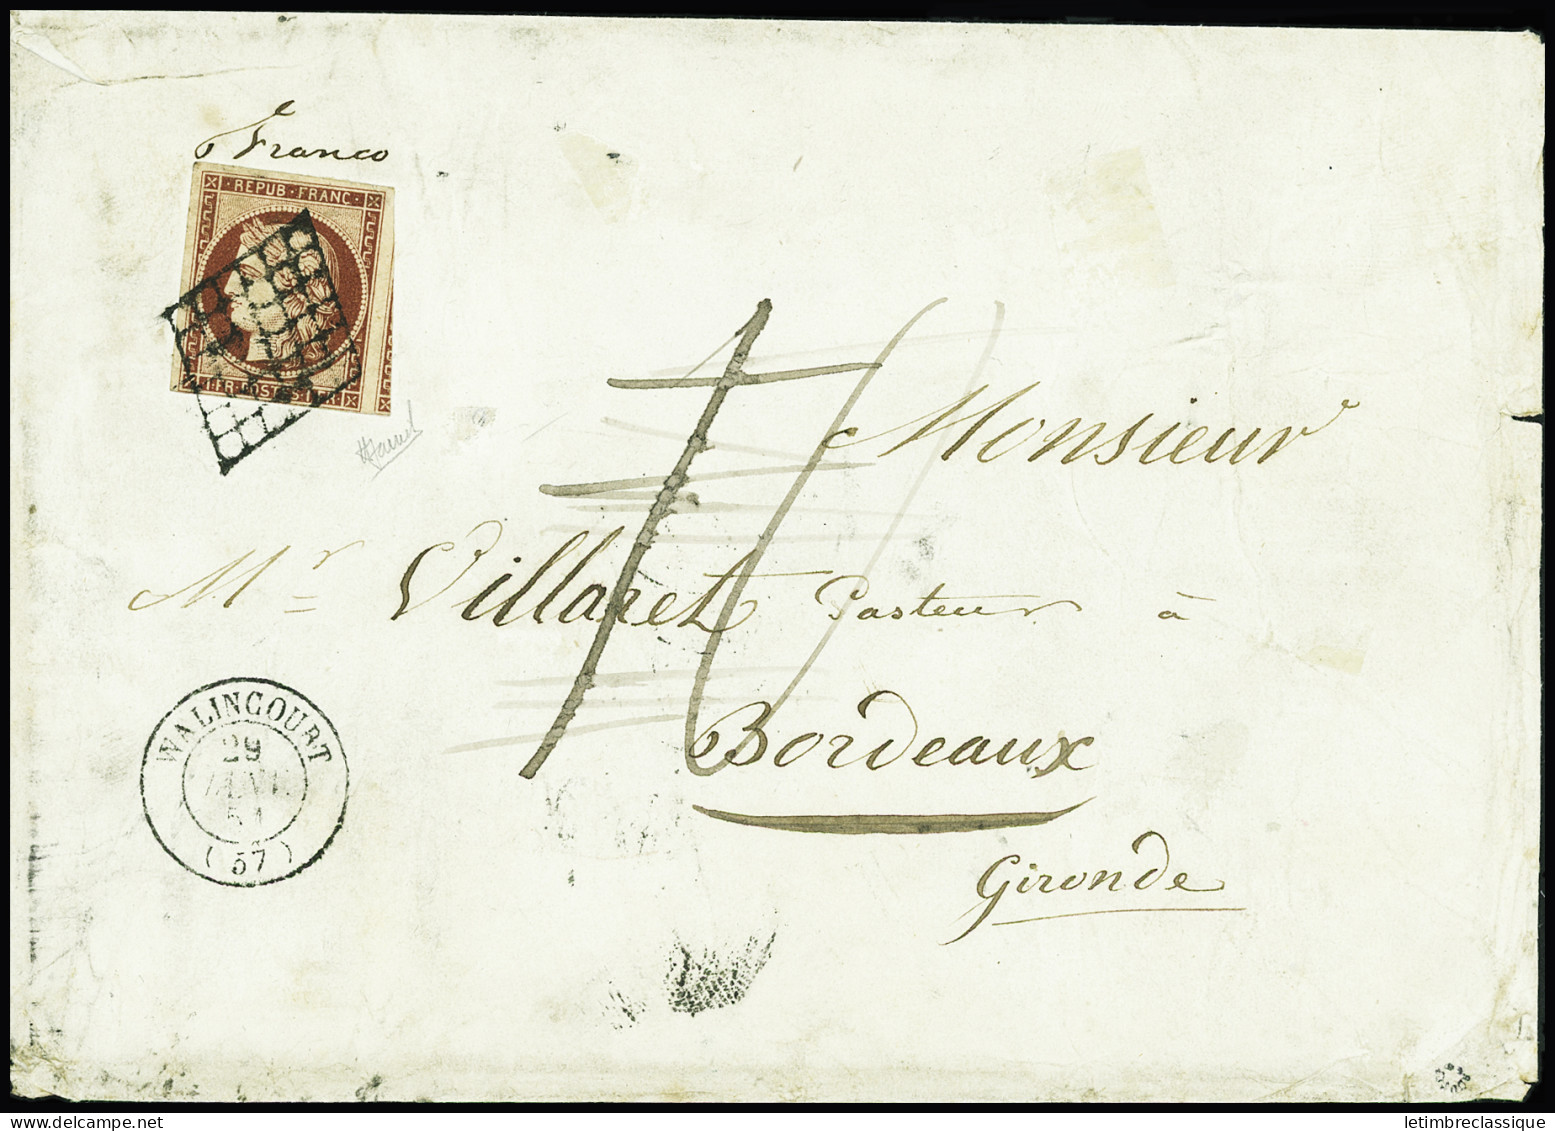 Franco
REPUB · FRANC ·
Monsieur
Mr Villaret Pasteur à
Bordeaux
Gironde
WALINCOURT
29
JANV.
51
(57)
letimbreclassique